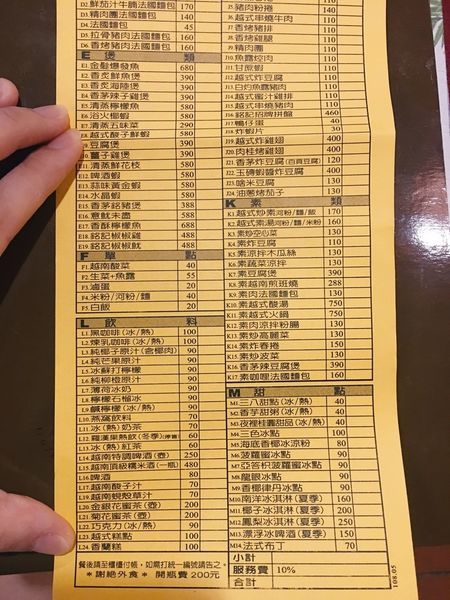 D2.鮮茄汁牛腩法國麵包 170
D3.精肉團法國麵包 140
D4.法國麵包 45
D5.拉骨豬肉法國麵包 160
D6.香烤豬肉法國麵包 160
E 煲 類
E1.金髮爆發魚 680
E2.香茅鮮魚煲 390
E3.香茅海陸煲 390
E4.香茅辣子雞煲 390
E5.清蒸檸檬魚 680
E6.浴火椰蝦 680
E7.清蒸五味菜 290
E8.越式酸子鮮蝦 580
E9.豆腐煲 390
E10.薑子雞煲 390
E11.清蒸鮮花枝 580
E12.啤酒蝦 580
E13.蒜味黃金蝦 580
E14.水晶蝦 580
E15.香茅銘豬煲 390
E16.意魷未盡 580
E17.香酥檸檬魚 680
E18.銘記椒椒雞 480
E19.銘記椒椒魷 480
F 單 點
F1.越南酸菜 40
F2.生菜+魚露 55
F3.滷蛋 20
F4.米粉/河粉/麵 40
F5.白飯 20
L 飲 料
L1.黑咖啡(冰/熱) 100
L2.煉乳咖啡(冰/熱) 100
L3.純椰子原汁(含椰肉) 90
L4.純芒果原汁 90
L5.冰蘇打檸檬 90
L6.純柳橙原汁 90
L7.薄荷冰奶 90
L8.檸檬石榴冰 90
L9.鹹檸檬(冰/熱) 90
L10.燕窩飲料 70
L11.冰(熱)奶茶 70
L12.羅漢果熱飲(冬季) 60
L13.冰(熱)紅茶 60
L14.越南特調啤酒(壺) 200
L15.越南頂級糯米酒(一瓶) 480
L16.啤酒 80
L17.越南酸子汁 70
L19.越南蜆殼草汁 70
L20.金銀花蜜茶(壺) 200
L21.菊花蜜茶(壺) 200
L22.巧克力(冰/熱) 90
L23.越式糕點 50
L24.香蘭糕 50
餐後請至櫃檯付帳，如需打統一編號請告之。
*謝絕外食* 開瓶費200元
J2.豬肉粉捲 110
J6.越式串燒牛肉 110
J8.香烤豬排 110
J8.香烤雞腿 110
J9.精肉團 110
J10.魚露焢肉 110
J11.甘蔗蝦 110
J12.越式炸豆腐 110
J13.白灼魚露豬肉 110
J14.越式蜜汁雞排 110
J15.越式串燒豬肉 110
J16.銘記招牌拼盤 460
J17.鴨仔蛋 40
J18.炸蝦片 30
J19.越式炸雞翅 400
J20.肉桂烤雞翅 400
J21.香茅炸豆腐(百頁豆腐) 120
J22.玉磚蝦醬炸豆腐 400
J23.啥米豆腐 240
J24.油蔥烤茄子 240
K 素 類
K1.越式炒素河粉/麵/飯 170
K2.越式素湯河粉/麵/米粉 160
K3.素炒空心菜 130
K4.素炸豆腐 110
K5.素涼拌木瓜絲 130
K6.素蔬菜涼拌 130
K7.素豆腐煲 390
K8.素越南煎斑嬈 288
K9.素肉法國麵包 130
K10.素越式酸湯 750
K11.素越式火鍋 750
K12.素肉涼拌粉腸 130
K13.素炒高麗菜 130
K14.素炸春捲 150
K15.素炒波菜 130
K16.香烤素辣法國麵包 160
K17.素咖哩法國麵包 160
M 甜 點
M1.三八甜點(冰/熱) 40
M2.香芋甜粥(冰/熱) 40
M3.夜裡桂圓甜品(冰/熱) 40
M4.三色冰點 100
M5.海底香椰冰涼粉 80
M6.菠蘿蜜冰點 90
M7.亞答枳菠蘿蜜冰點 90
M8.龍眼冰點 90
M9.香椰律丹冰點 90
M10.南洋冰淇淋(夏季) 160
M11.椰子冰淇淋(夏季) 200
M12.鳳梨冰淇淋(夏季) 200
M13.漂浮冰啤酒(夏季) 150
M14.法式布丁 70
小計
服務費 10%
合計
108.05